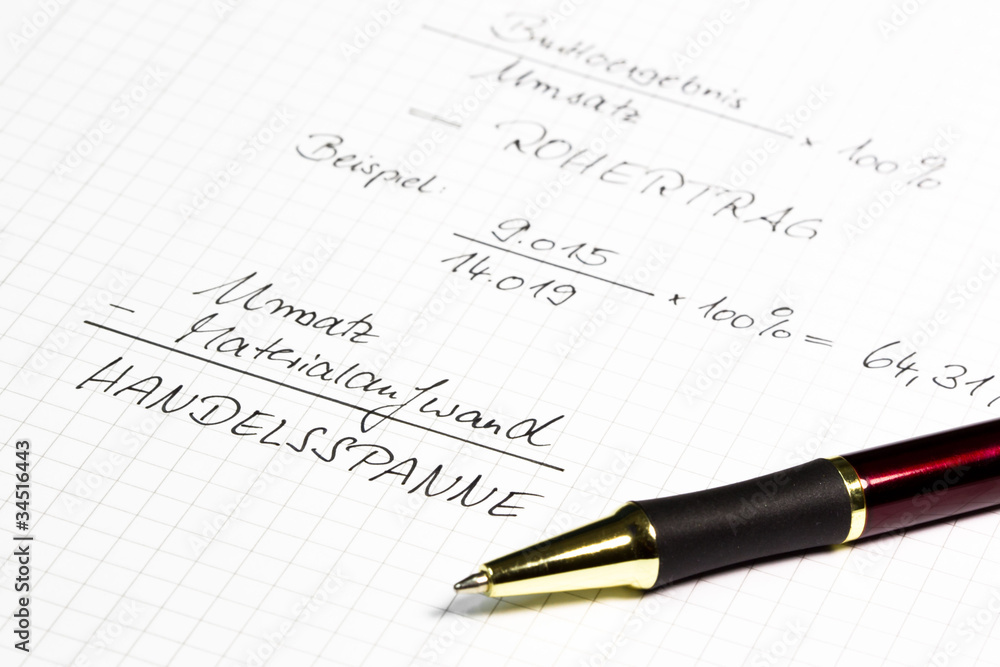 Bruttoergebnis
Umsatz × 100%
= ROHERTRAG
Beispiel:
9.015
14.019 × 100% = 64,31
Umsatz
- Materialaufwand
HANDELSSPANNE
Adobe Stock | #34516443